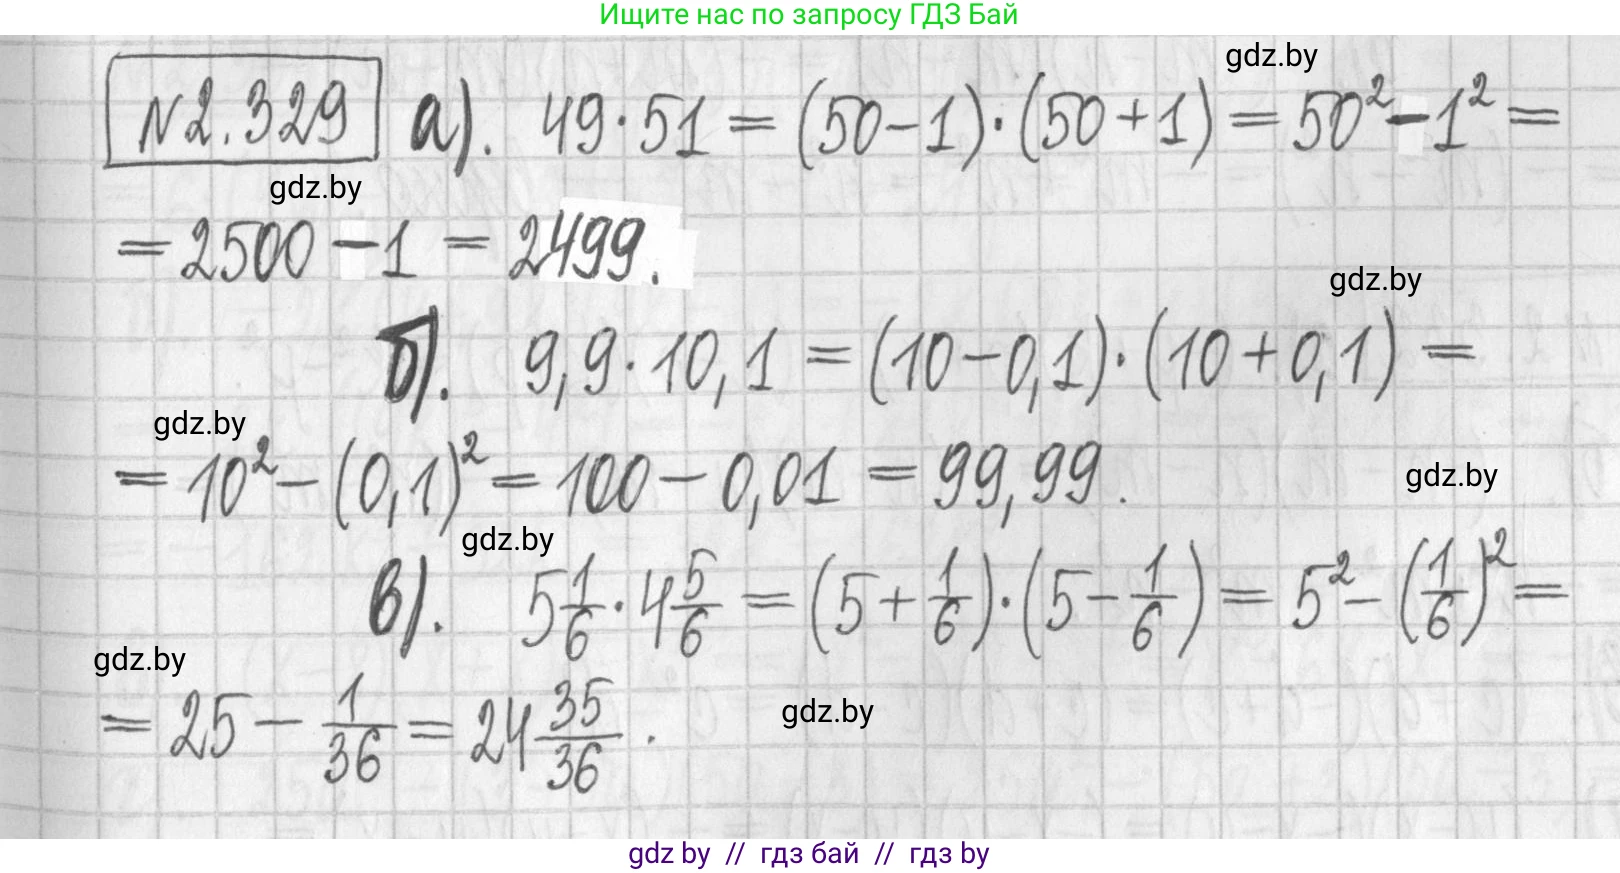 Ищите нас по запросу ГДЗ Бай
gdz.by
№2.329 а). 49·51 = (50-1)·(50+1) = 50²-1² =
gdz.by
= 2500 -1 = 2499.
gdz.by
б). 9,9·10,1 = (10-0,1)·(10+0,1) =
gdz.by
= 10² - (0,1)² = 100 - 0,01 = 99,99.
gdz.by
gdz.by
в). 5 1/6 · 4 5/6 = (5+1/6)·(5-1/6) = 5² - (1/6)² =
gdz.by
= 25 - 1/36 = 24 35/36.
gdz.by
gdz by // гдз бай // гдз by